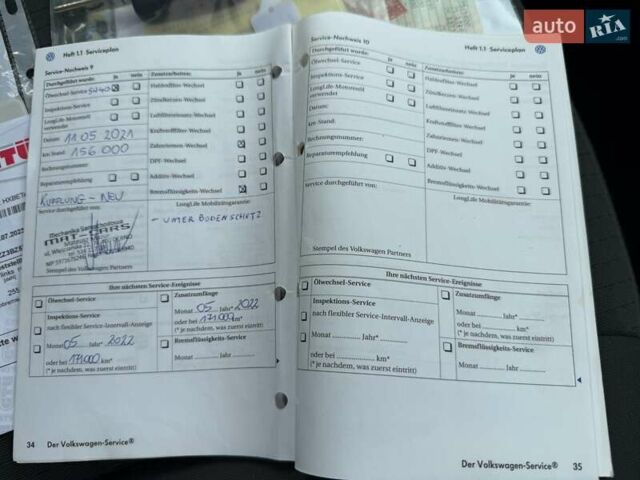 auto RIA .com
Heft 1.1 Serviceplan
Service-Nachweis 9
Durchgeführt wurde: ja nein Zusatzarbeiten: ja nein
Ölwechsel-Service 5W40 Staub-/Pollenfilter-Wechsel
Inspektions-Service Zündkerzen-Wechsel
LongLife Motorenöl verwendet Luftfiltereinsatz-Wechsel
Datum: 11.05.2021 Kraftstofffilter-Wechsel
km Stand: 156.000 Zahnriemen-Wechsel
Rechnungsnummer: DPF-Wechsel
Reparaturempfehlung Additiv-Wechsel
KUPPLUNG - NEU Bremsflüssigkeits-Wechsel
Service durchgeführt von: LongLife Mobilitätsgarantie:
- UNTERBODENSCHUTZ
MAT-CARS
Stempel des Volkswagen Partners
Ihre nächsten Service-Ereignisse
Ölwechsel-Service Zusatzumfänge
Inspektions-Service Monat 05 Jahr* 2022
nach flexibler Service-Intervall-Anzeige oder bei 171000 km*
(* je nachdem, was zuerst eintritt)
Monat 05 Jahr* 2022 Bremsflüssigkeits-Service
oder bei 171000 km* Monat Jahr
(* je nachdem, was zuerst eintritt)
34 Der Volkswagen-Service®
Service-Nachweis 10 Heft 1.1 Serviceplan
Durchgeführt wurde: ja nein Zusatzarbeiten: ja nein
Ölwechsel-Service
Inspektions-Service Zündkerzen-Wechsel
LongLife Motorenöl verwendet Luftfiltereinsatz-Wechsel
Datum: Kraftstofffilter-Wechsel
km Stand: Zahnriemen-Wechsel
Rechnungsnummer: DPF-Wechsel
Reparaturempfehlung Additiv-Wechsel
Bremsflüssigkeits-Wechsel
Service durchgeführt von: LongLife Mobilitätsgarantie:
Stempel des Volkswagen Partners
Ihre nächsten Service-Ereignisse
Ölwechsel-Service Zusatzumfänge
Inspektions-Service Monat Jahr*
nach flexibler Service-Intervall-Anzeige oder bei km*
(* je nachdem, was zuerst eintritt)
Monat Jahr* Bremsflüssigkeits-Service
oder bei km* Monat Jahr
(* je nachdem, was zuerst eintritt)
Der Volkswagen-Service® 35